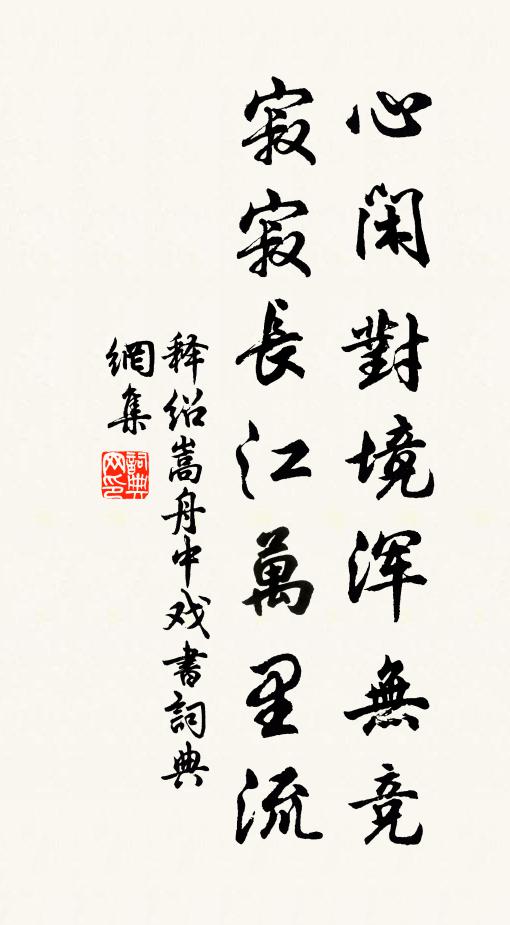 心閑對境浑無竞
寂寂長江萬里流
释绍嵩舟中戏書詞典
網集
詞典网印